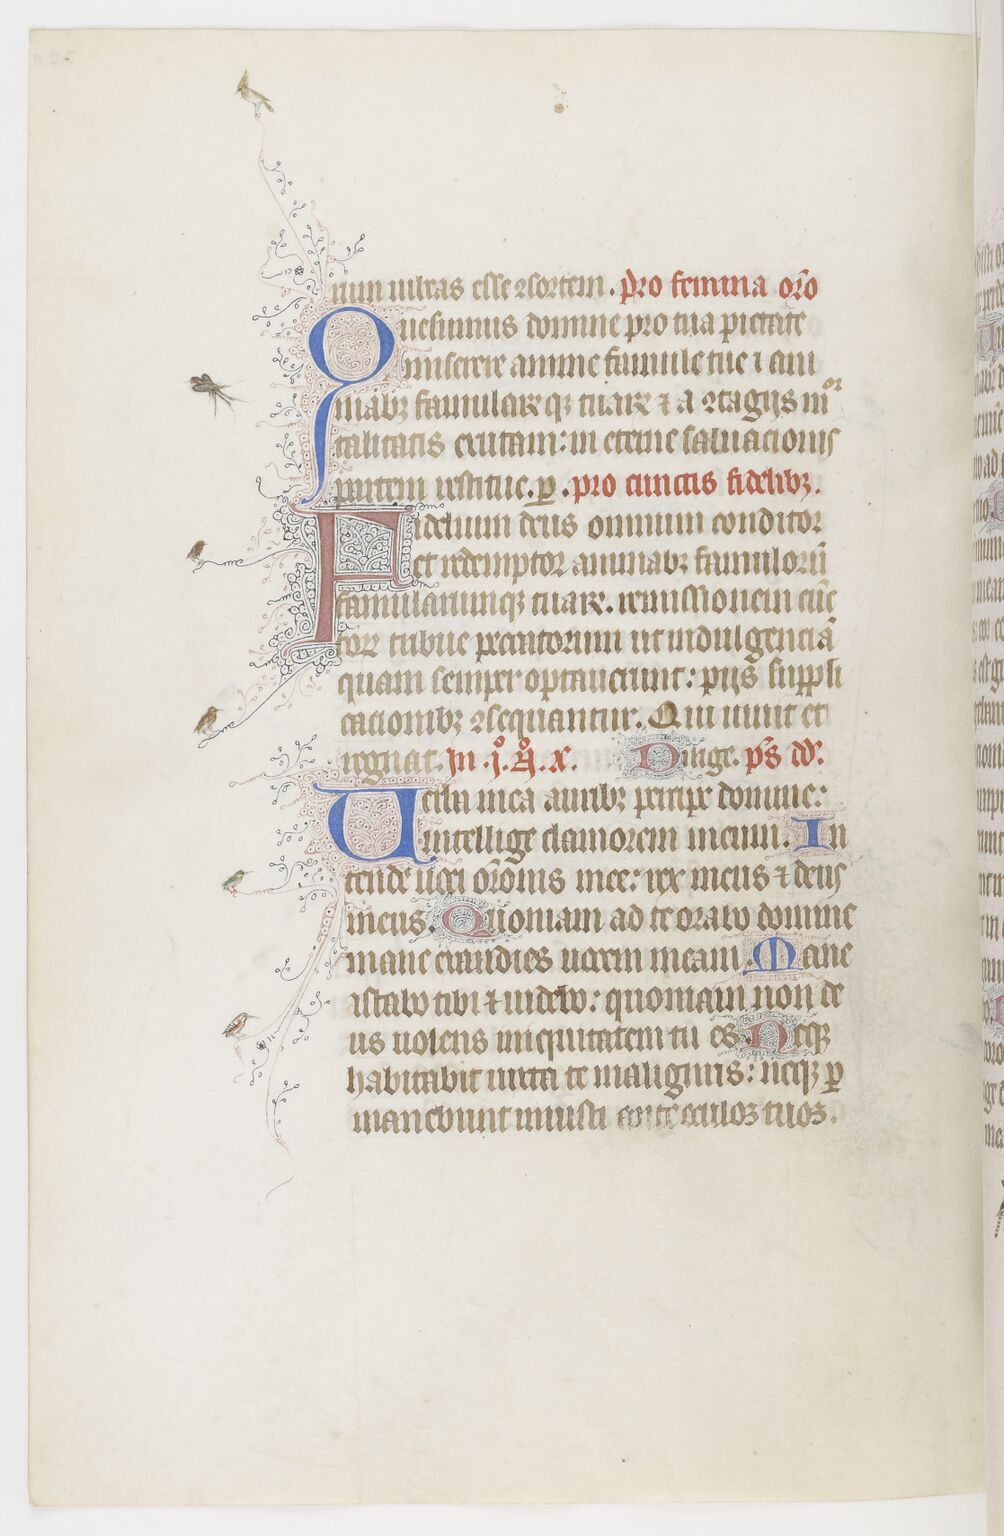 rum iubeas esse ꝯsortem. pro femina or̃o
Quesumus domine pro tua pietate
miserere anime famule tue ⁊ ani
mabꝫ famularꝫ qꝫ tuarꝫ ⁊ a ꝯtagijs moꝛ
talitatis exutam: in eterne saluacionis
partem restitue. ꝑ. pro cunctis fidelibꝫ.
Fidelium deus omnium conditor
et redemptor animabꝫ famuloꝛũ
famularumqꝫ tuarꝫ. remissionem cũc
toꝝ tribue peccatorum ut indulgenciã
quam semper optauerunt: pijs suppli
cacionibꝫ ꝯsequantur. Qui uiuit et
regnat. In .j. A. x. Dirige. ps dd.
Verba mea auribꝫ percipe domine:
intellige clamorem meum. In
tende uoci or̃onis mee: rex meus ⁊ deus
meus. Quoniam ad te orabo domine
mane exaudies uocem meam. Mane
astabo tibi ⁊ uidebo: quoniam non de
us uolens iniquitatem tu es. Neqꝫ
habitabit iuxta te malignus: neqꝫ ꝑ
manebunt iniusti ante oculos tuos.